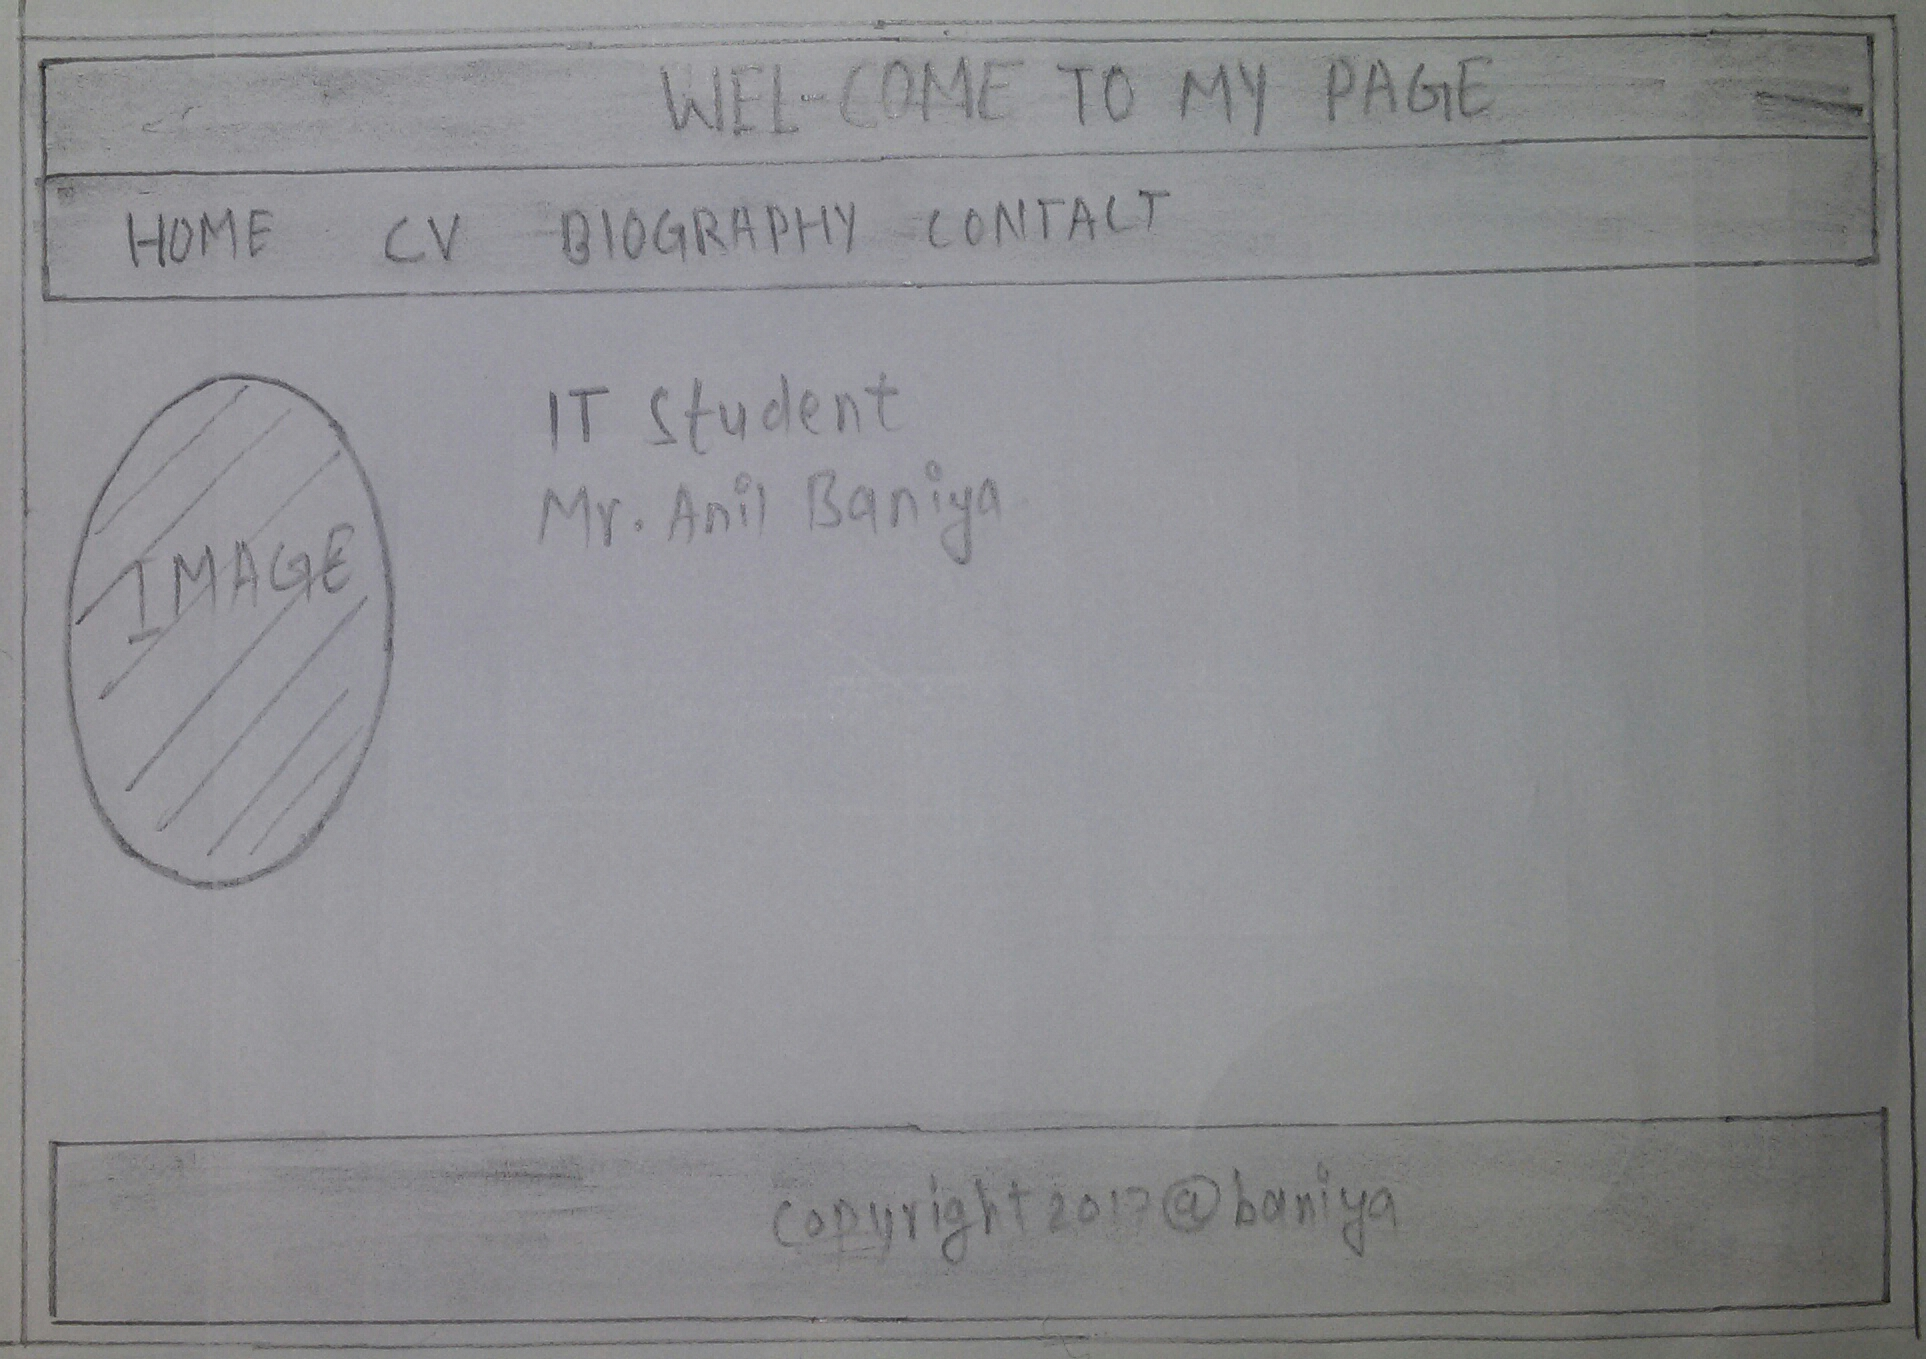 WEL-COME TO MY PAGE
HOME CV BIOGRAPHY CONTACT
IT Student
Mr. Anil Baniya
IMAGE
copyright 2017@baniya